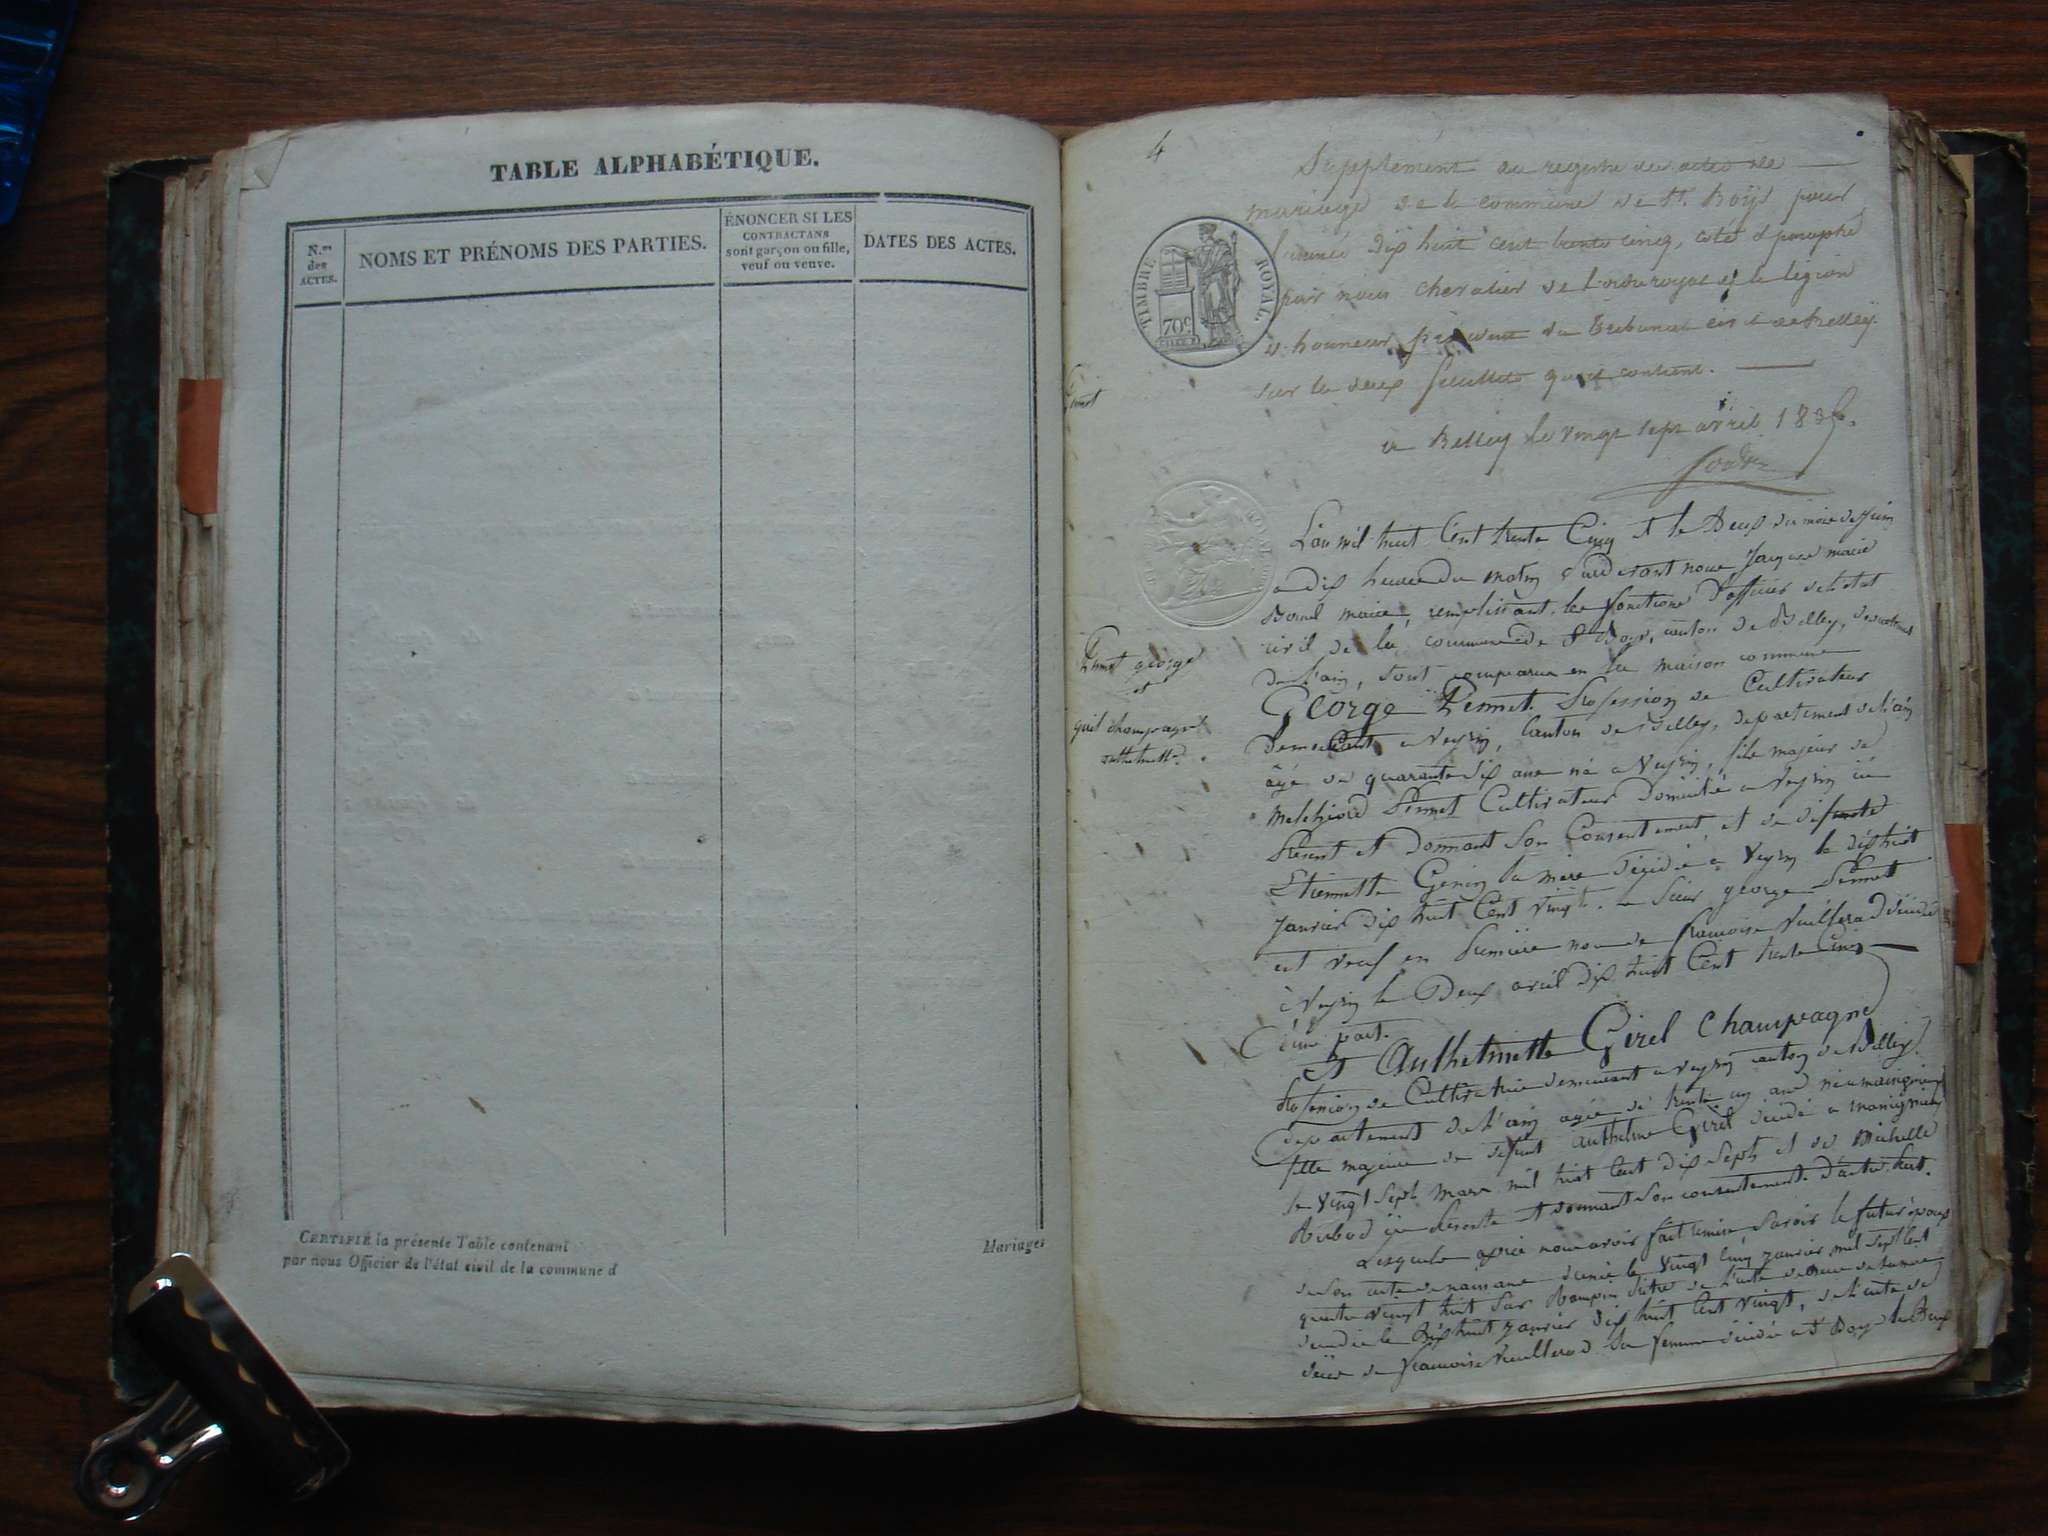 TABLE ALPHABÉTIQUE.
N.os
des
ACTES.
NOMS ET PRÉNOMS DES PARTIES.
ÉNONCER SI LES
CONTRACTANS
sont garçon ou fille,
veuf ou veuve.
DATES DES ACTES.
CERTIFIÉ la présente Table contenant
par nous Officier de l'état civil de la commune d
Mariages
4
Supplément au registre des actes de
mariage de la commune de St. Boys pour
l'année dix huit cent trente cinq, coté et paraphé
par nous chevalier de l'ordre royal de la légion
d'honneur président du Tribunal civil de Belley
sur les deux feuillets qu'il contient.
a Belley le vingt sept avril 1835.
TIMBRE ROYAL
70c
L'an mil huit Cent trente Cinq et le Deux du mois de Juin
a dix heures du matin pardevant nous Jacques marie
maire, remplissant les fonctions d'officier de l'état
civil de la commune de St Boys, canton de Belley, département
de l'ain, sont comparus en la maison commune
George Pennet. Profession de Cultivateur
Demeurant a Veyrin, Canton de Belley, département de l'ain
âgé de quarante six ans né a Veyrin, fils majeur de
melchiord Pennet Cultivateur Domicilié a Veyrin ici
Présent et Donnant son Consentement, et de defunte
Etiennette Genin sa mère Décédée a Veyrin le dix huit
Janvier dix huit Cent vingt. le Sieur george Pennet
est veuf en Premiere noce de francoise Vuillerod décédée
à Veyrin le Deux avril dix huit Cent trente Cinq
d'une part.
Et Anthelmette Girel Champagne
Profession de Cultivatrice demeurant a Veyrin canton de Belley
département de l'ain agée de trente un ans née a
fille majeure de defunt Anthelme Girel décédé a
le vingt sept mars mil huit Cent dix sept et de Michelle
ici Présente et donnant son consentement. d'autre part.
Lesquels après nous avoir fait remise, Savoir le futur époux
de son acte de naissance du vingt Cinq Janvier mil sept Cent
quatre vingt huit
décédée le Dix huit Janvier dix huit Cent vingt, de l'acte de
décès de francoise Vuillerod sa femme décédée a St Boys le Deux
Pennet george
et
girel champagne
anthelmette